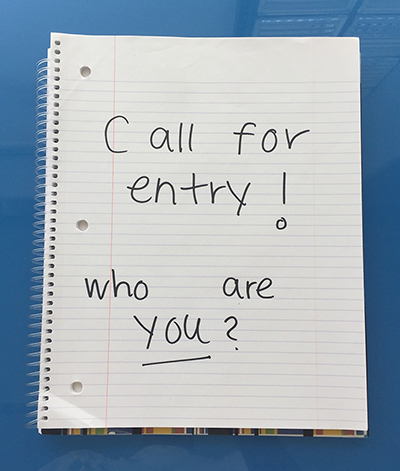 Call for
entry!
who are
you?